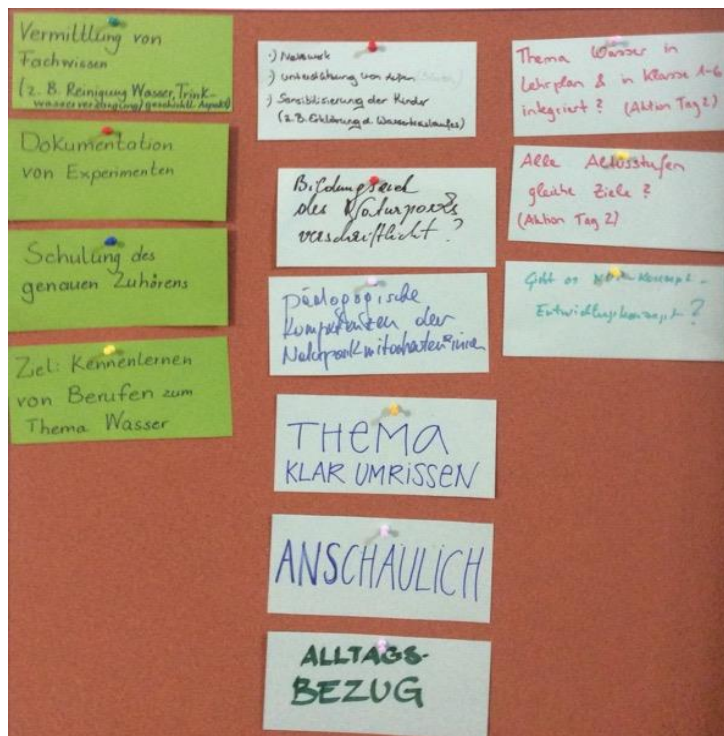 Vermittlung von
Fachwissen
(z. B. Reinigung Wasser, Trink-
wasserversorgung, geschichtl. Aspekte)
Dokumentation
von Experimenten
Schulung des
genauen Zuhörens
Ziel: Kennenlernen
von Berufen zum
Thema Wasser
·) Netzwerk
·) Unterstützung von
·) Sensibilisierung der Kinder
(z. B. Erklärung d. Wasserkreislaufes)
Bildungs
des Naturparks
verschriftlicht?
Pädagogische
Kompetenzen der
THEMA
KLAR UMRISSEN
ANSCHAULICH
ALLTAGS-
BEZUG
Thema Wasser in
Lehrplan & in Klasse 1-6
integriert? (Aktion Tag 2)
Alle Altersstufen
gleiche Ziele?
(Aktion Tag 2)
Gibt es
Entwicklungskonzept?